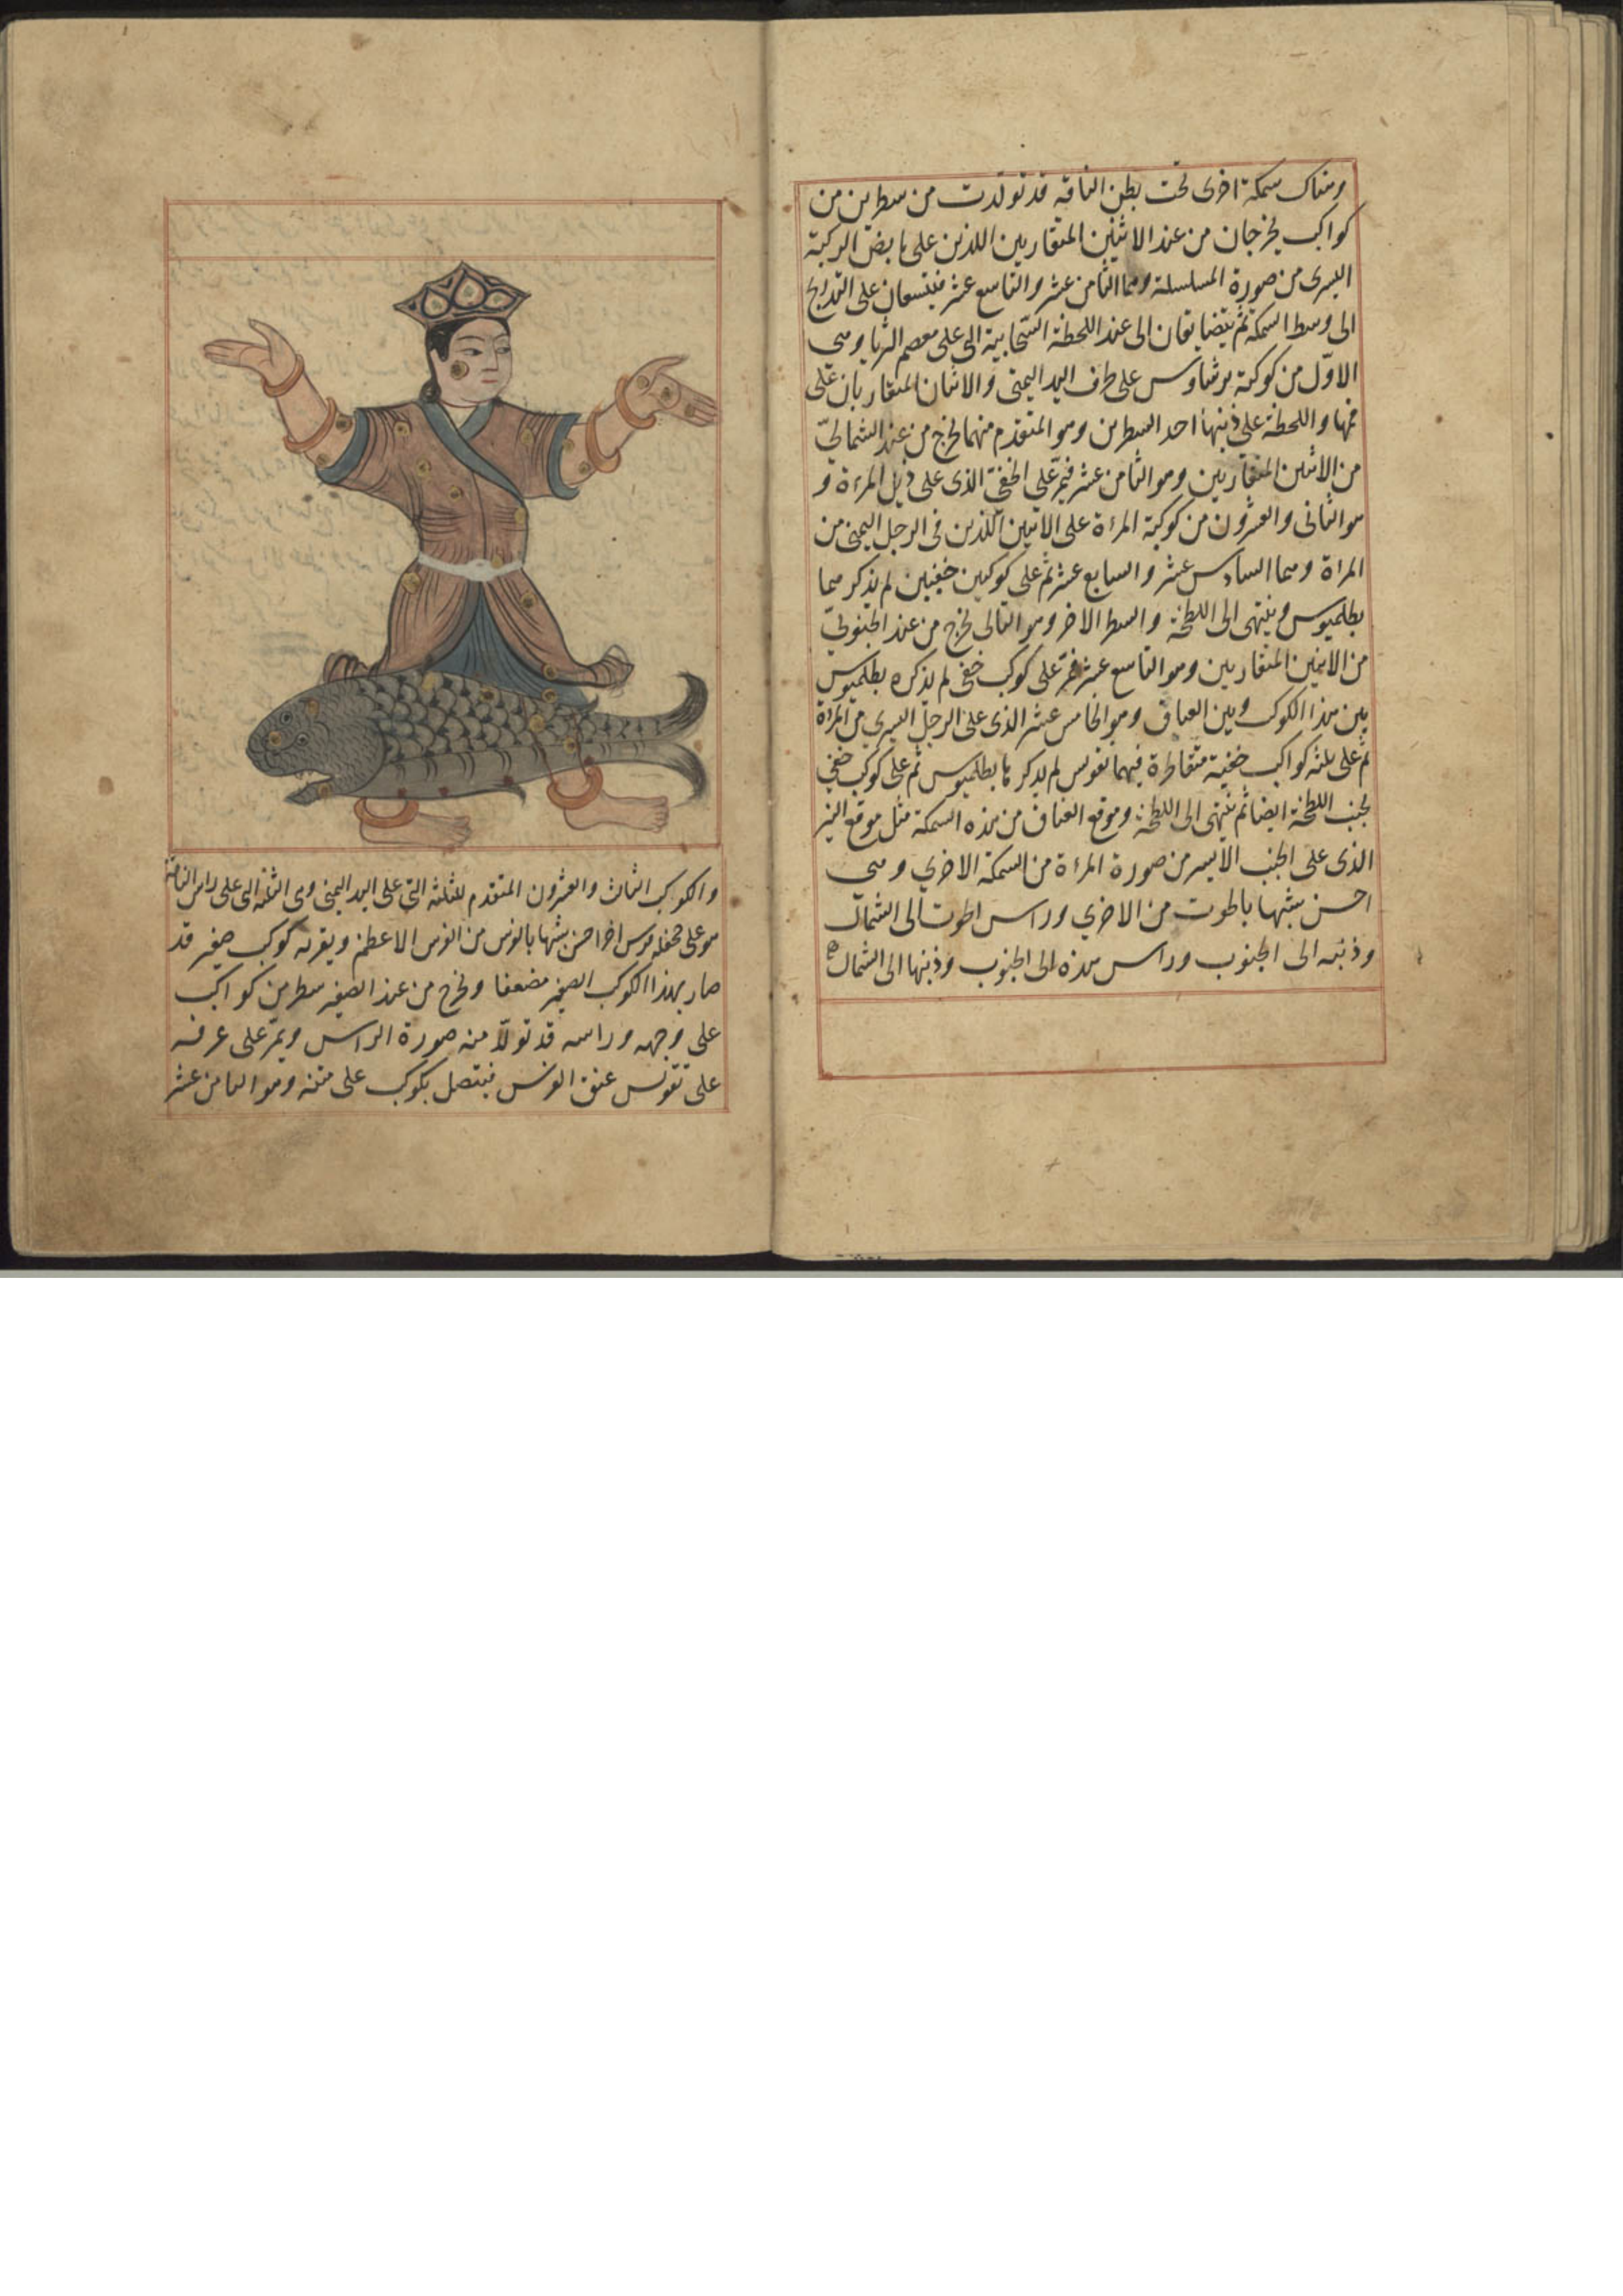 وهناك سمكة اخرى تحت بطن الناقه قد تولدت من سطرين من
كواكب يخرجان من عند الاثنين المتقاربين اللذين على مابض الركبة
اليسرى من صورة المسلسلة وهما الثامن عشر والتاسع عشر فيتسعان على التدريج
الى وسط السمكة ثم يتضايقان الى عند اللطخة السحابية التى على معصم الثريا وهى
الاوّل من كوكبة برشاوس على طرف اليد اليمنى والاثنان المتقاربان على
فمها واللطخة على ذنبها احد السطرين وهو المتقدم منهما يخرج من عند الشمالىّ
من الاثنين المتقاربين وهو الثامن عشر فيمرّ على الخفىّ الذى على ذيل المرءة و
هو الثانى والعشرون من كوكبة المرءة على الاثنين اللذين فى الرجل اليمنى من
المراة وهما السادس عشر والسابع عشر ثم على كوكبين خفيين لم يذكرهما
بطلميوس وينتهى الى اللطخة والسطر الاخر وهو التالى يخرج من عند الجنوبىّ
من الاثنين المتقاربين وهو التاسع عشر فيمرّ على كوكب خفى لم يذكره بطلميوس
بين هذا الكوكب وبين العناق وهو الخامس عشر الذى على الرجل اليسرى من المرءة
ثم على ثلثة كواكب خفية متقاطرة فيهما تقويس لم يذكرها بطلميوس ثم على كوكب خفى
بجنب اللطخة ايضا ثم ينتهى الى اللطخة وموقع العناق من هذه السمكة مثل موقع النير
الذى على الجنب الايسر من صورة المرءة من السمكة الاخرى وهى
احسن شبها بالحوت من الاخرى وراس الحوت الى الشمال
وذنبه الى الجنوب وراس هذه الى الجنوب وذنبها الى الشمال
والكوكب الثالث والعشرون المتقدم للثلثة التى على اليد اليمنى وهى الثلثة التى على راس الناقة
هو على جحفلة فرس اخر احسن شبها بالفرس من الفرس الاعظم وبقربه كوكب صغير قد
صار بهذا الكوكب الصغير مضعفا ويخرج من عند الصغير سطر من كواكب
على وجهه وراسه قد تولد منه صورة الراس ويمرّ على عرفه
على تقويس عنق الفرس فيتصل بكوكب على متنه وهو الثامن عشر